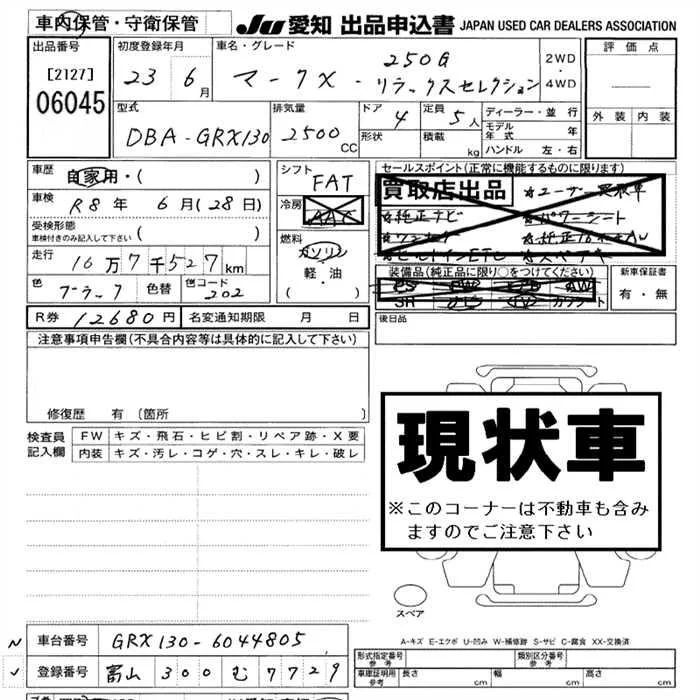 車内保管・守衛保管 JU 愛知 出品申込書 JAPAN USED CAR DEALERS ASSOCIATION
出品番号 [2127] 06045
初度登録年月 23 6月
車名・グレード 250G マークX・リラックスセレクション
2WD・4WD
評価点
外装 内装
型式 DBA-GRX130
排気量 2500 CC
ドア 4 形状
定員 5人 積載 kg
ディーラー・並行
モデル年式 年
ハンドル 左・右
車歴 自家用・( )
車検 R8年 6月(28日)
受検形態 車検付きのみ記入して下さい ( )
走行 16万7千527km
色 ブラック 色替 色コード 202
シフト FAT
冷房 AAC
燃料 ガソリン・軽・油 ( )
セールスポイント(正常に機能するものに限ります)
買取店出品 ☆ユーザー買取車
☆純正ナビ ☆パワーシート
☆ビルトインETC
装備品(純正品に限り○をつけてください)
PS PW ABS AW
SR TV ガソリート
新車保証書 有・無
R券 12680円 名変通知期限 月 日
後日品
注意事項申告欄(不具合内容等は具体的に記入して下さい)
修復歴 有 〔箇所 〕
検査員記入欄
FW キズ・飛石・ヒビ割・リペア跡・X要
内装 キズ・汚レ・コゲ・穴・スレ・キレ・破レ
現状車
※このコーナーは不動車も含み
ますのでご注意下さい
スペア
A-キズ E-エクボ U-凹み W-補修跡 S-サビ C-腐食 XX-交換済
車台番号 GRX130-6044805
登録番号 富山 300 む 7729
形式指定番号 参考 類別区分番号 参考
車庫証明用 参考 長さ cm 幅 cm 高さ cm